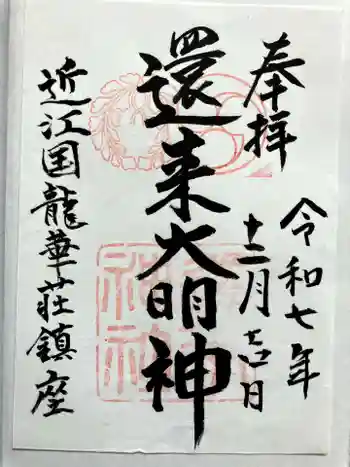 奉拝
令和七年
十二月十四日
還来大明神
近江国龍華荘鎮座